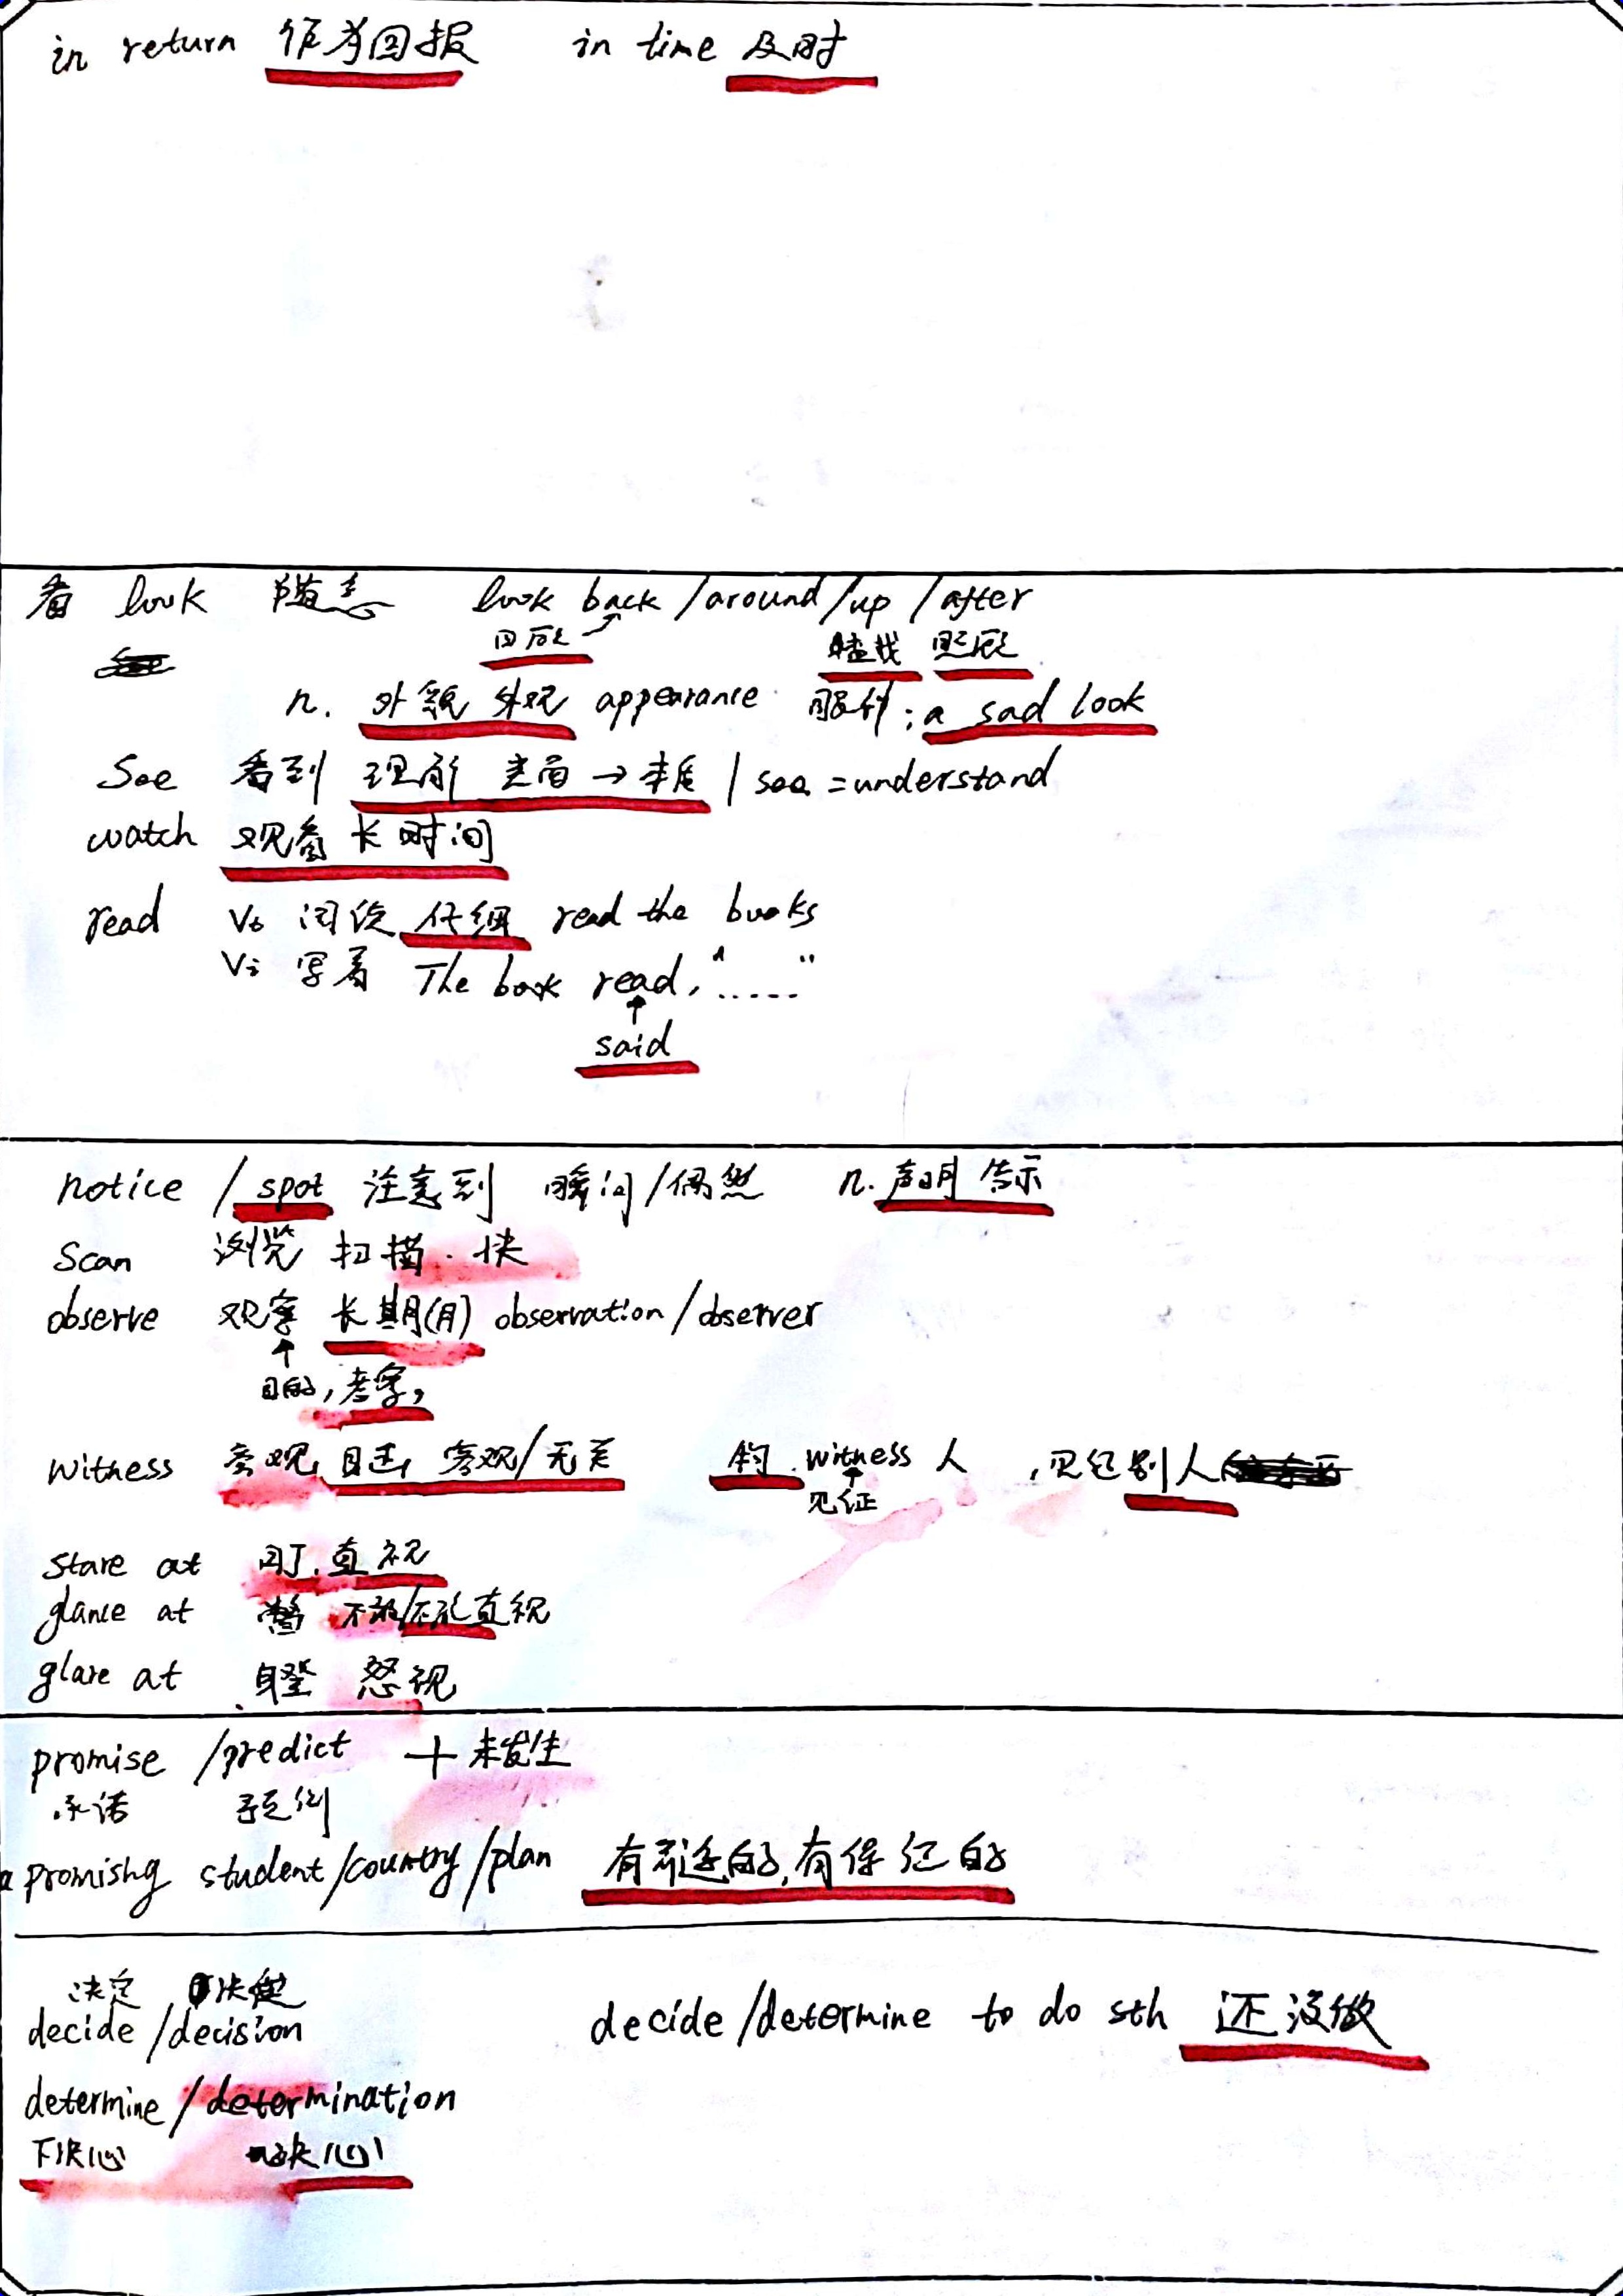 in return 作为回报 in time 及时
看 look 随意 look back/around/up/after
回顾 查找 照顾
n. 外貌 外观 appearance 眼神; a sad look
See 看到 理解 表面→本质 / see =understand
watch 观看 长时间
read Vt 阅读 仔细 read the books
Vi 写着 The book read, "......"
said
notice /spot 注意到 瞬间/偶然 n. 声明 告示
Scan 浏览 扫描. 快
observe 观察 长期(月) observation/observer
目的,考察,
witness 旁观 目击, 客观/无关 witness 人 ,见证别人
见证
stare at 盯.直视
glance at 瞥 不敢/不能直视
glare at 瞪 怒视
promise /predict + 未发生
承诺 预测
a promising student/country/plan 有前途的,有保证的
决定 决定
decide/decision decide/determine to do sth 还没做
determine/determination
下决心 决心